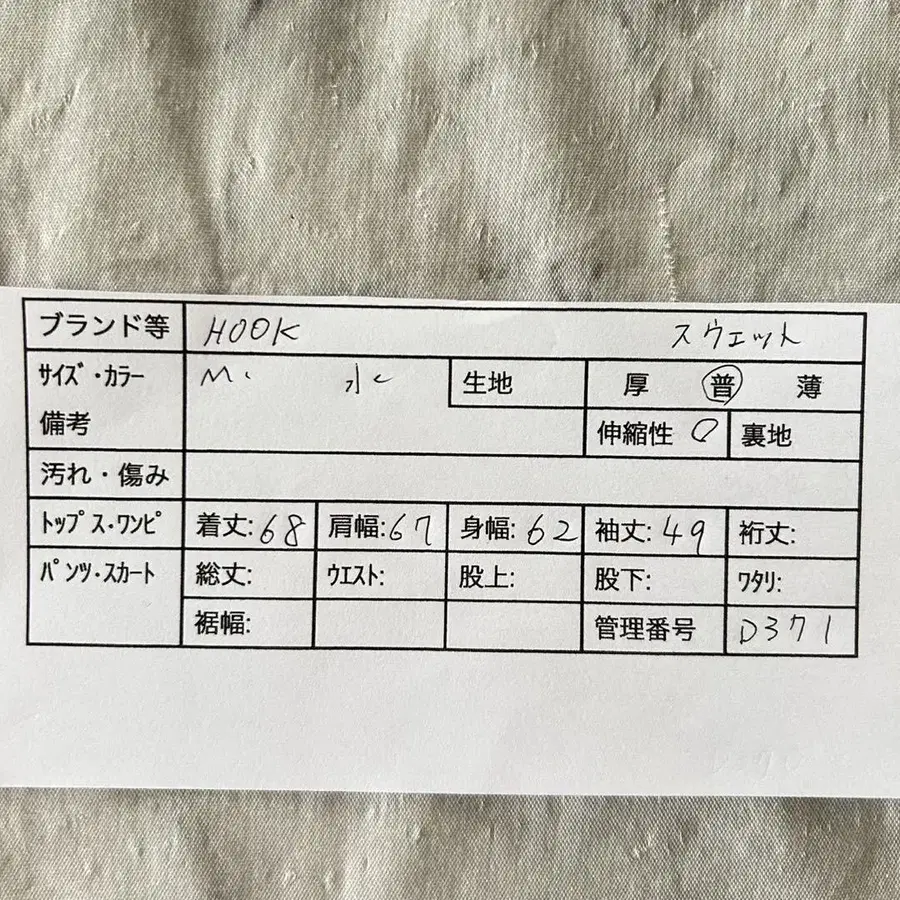 ブランド等 HOOK スウェット
サイズ・カラー M 水 生地 厚 普 薄
備考 伸縮性 ○ 裏地
汚れ・傷み
トップス・ワンピ 着丈:68 肩幅:67 身幅:62 袖丈:49 裄丈:
パンツ・スカート 総丈: ウエスト: 股上: 股下: ワタリ:
裾幅: 管理番号 D371